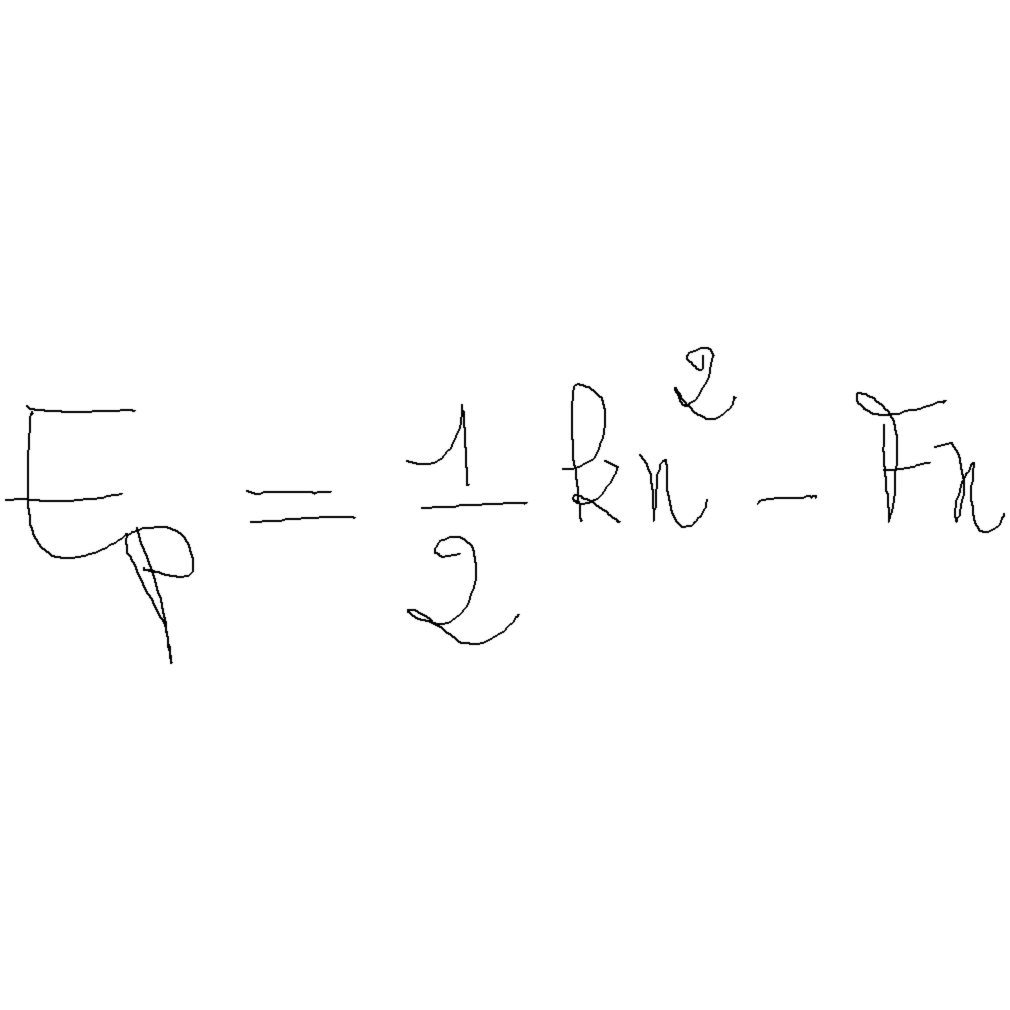 E_p = \frac{1}{2} kx^2 - Fx